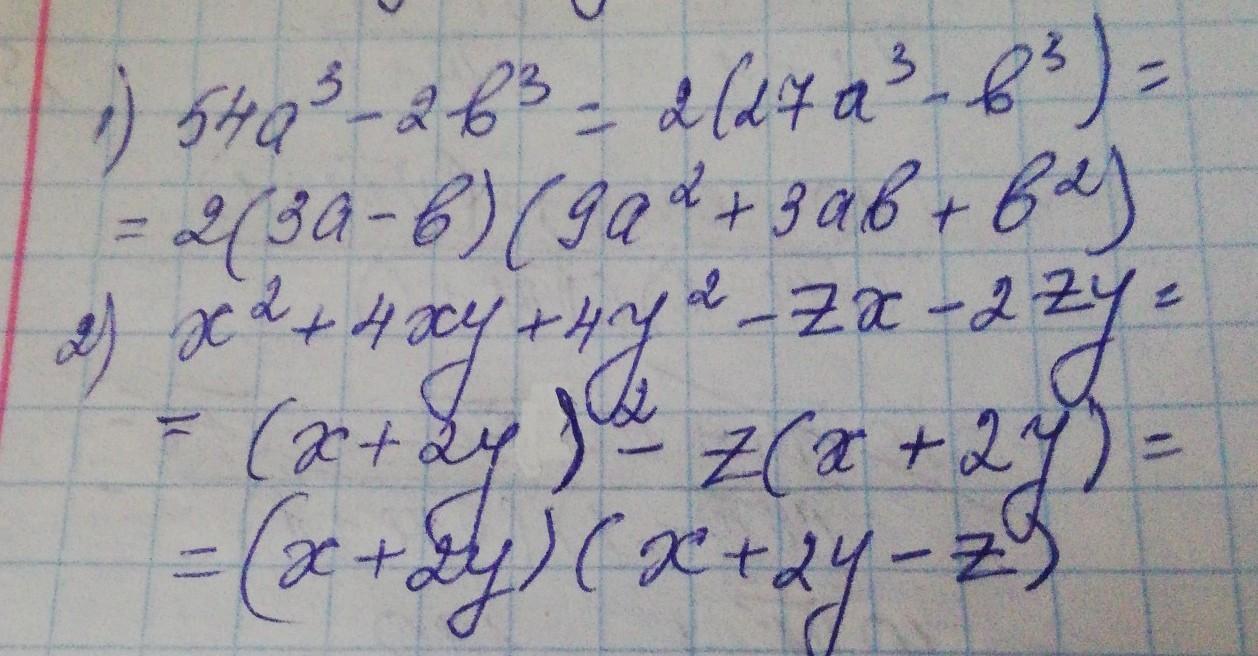 1) 54a³ - 2b³ = 2(27a³ - b³) =
= 2(3a - b)(9a² + 3ab + b²)
2) x² + 4xy + 4y² - zx - 2zy =
= (x + 2y)² - z(x + 2y) =
= (x + 2y)(x + 2y - z)